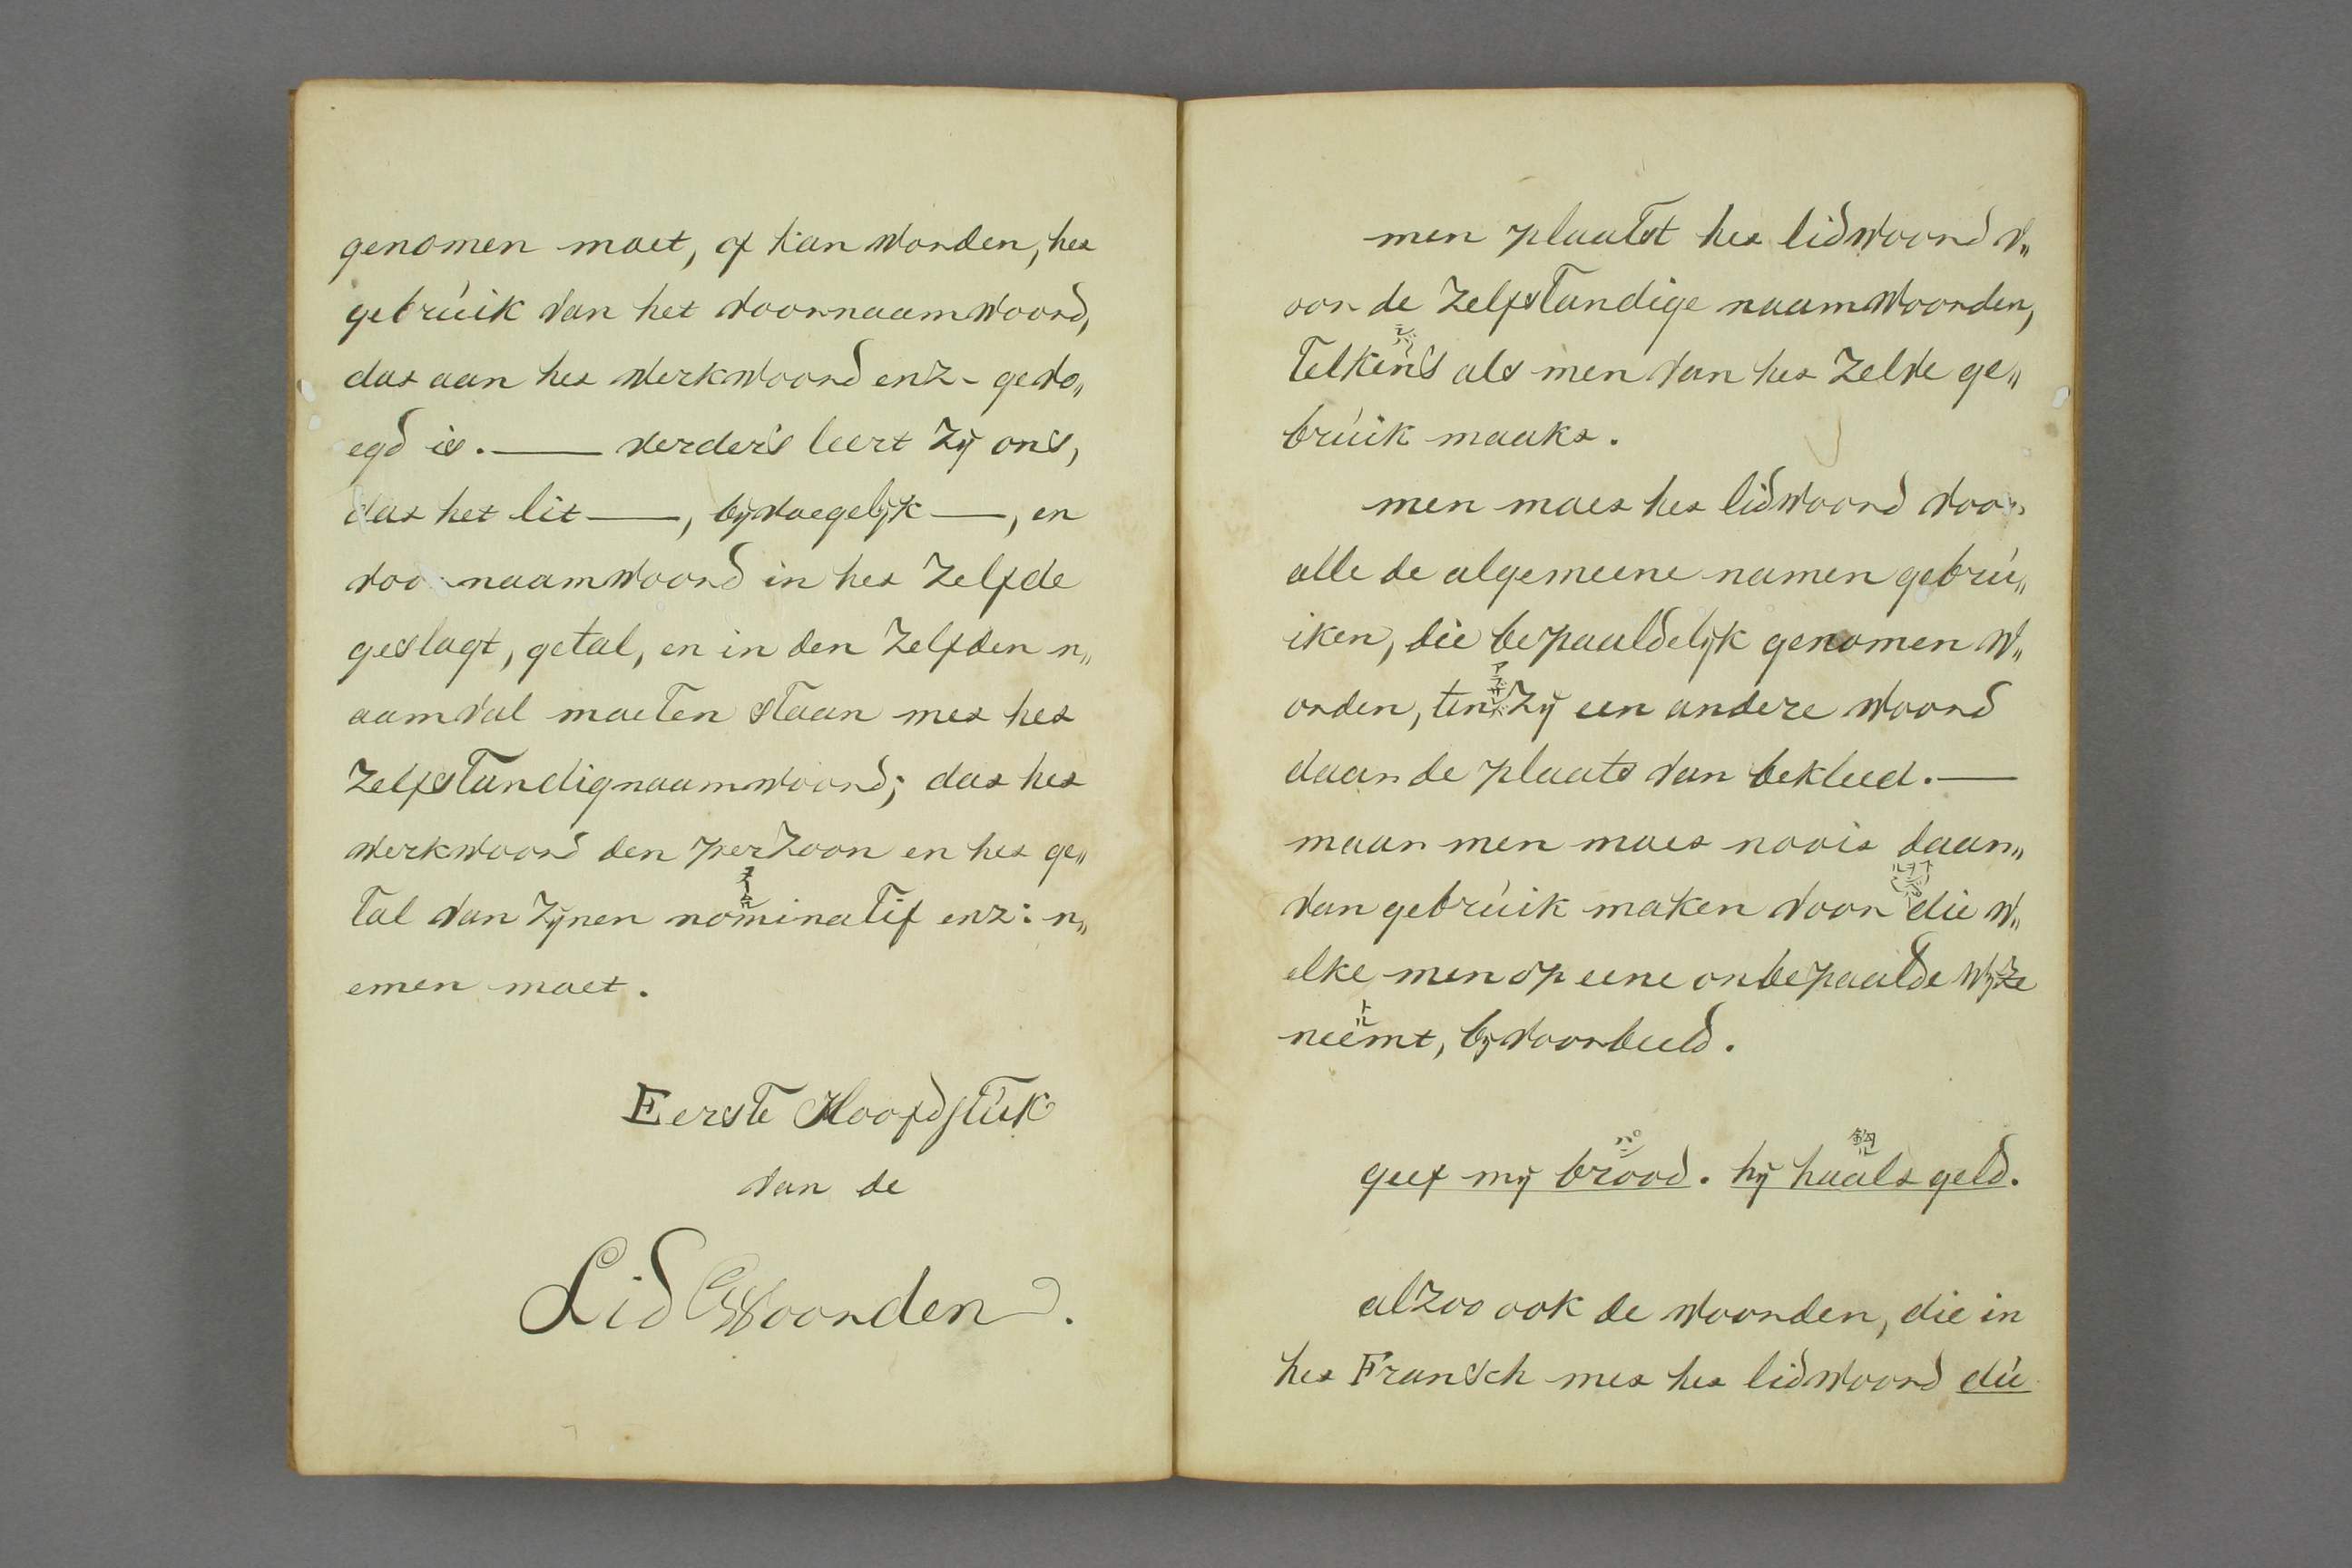 genomen moet, of kan worden, het
gebruik van het voornaamwoord,
dat aan het werkwoord enz- gevo„
egd is. — verders leert zij ons,
dat het lit —, bijvoegelijk —, en
voornaamwoord in het zelfde
geslagt, getal, en in den zelfden n„
aamval moeten staan met het
zelfstandignaamwoord; dat het
werkwoord den perzoon en het ge„
tal van zijnen nominatif enz: n„
emen moet.
Eerste Hoofdstuk
van de
Lid Woorden.
men plaatst het lidwoord v„
oor de zelfstandige naamwoorden,
telkens als men van het zelve ge„
bruik maakt.
men moet het lidwoord voor
alle de algemeene namen gebru„
iken, die bepaaldelijk genomen w„
orden, ten zij een andere woord
daar de plaats van bekleed. —
maar men moet nooit daar„
van gebruik maken voor die w„
elke men op eene onbepaalde wijze
neemt, bijvoorbeeld.
geef mij brood. hij haalt geld.
alzoo ook de woorden, die in
het Fransch met het lidwoord du